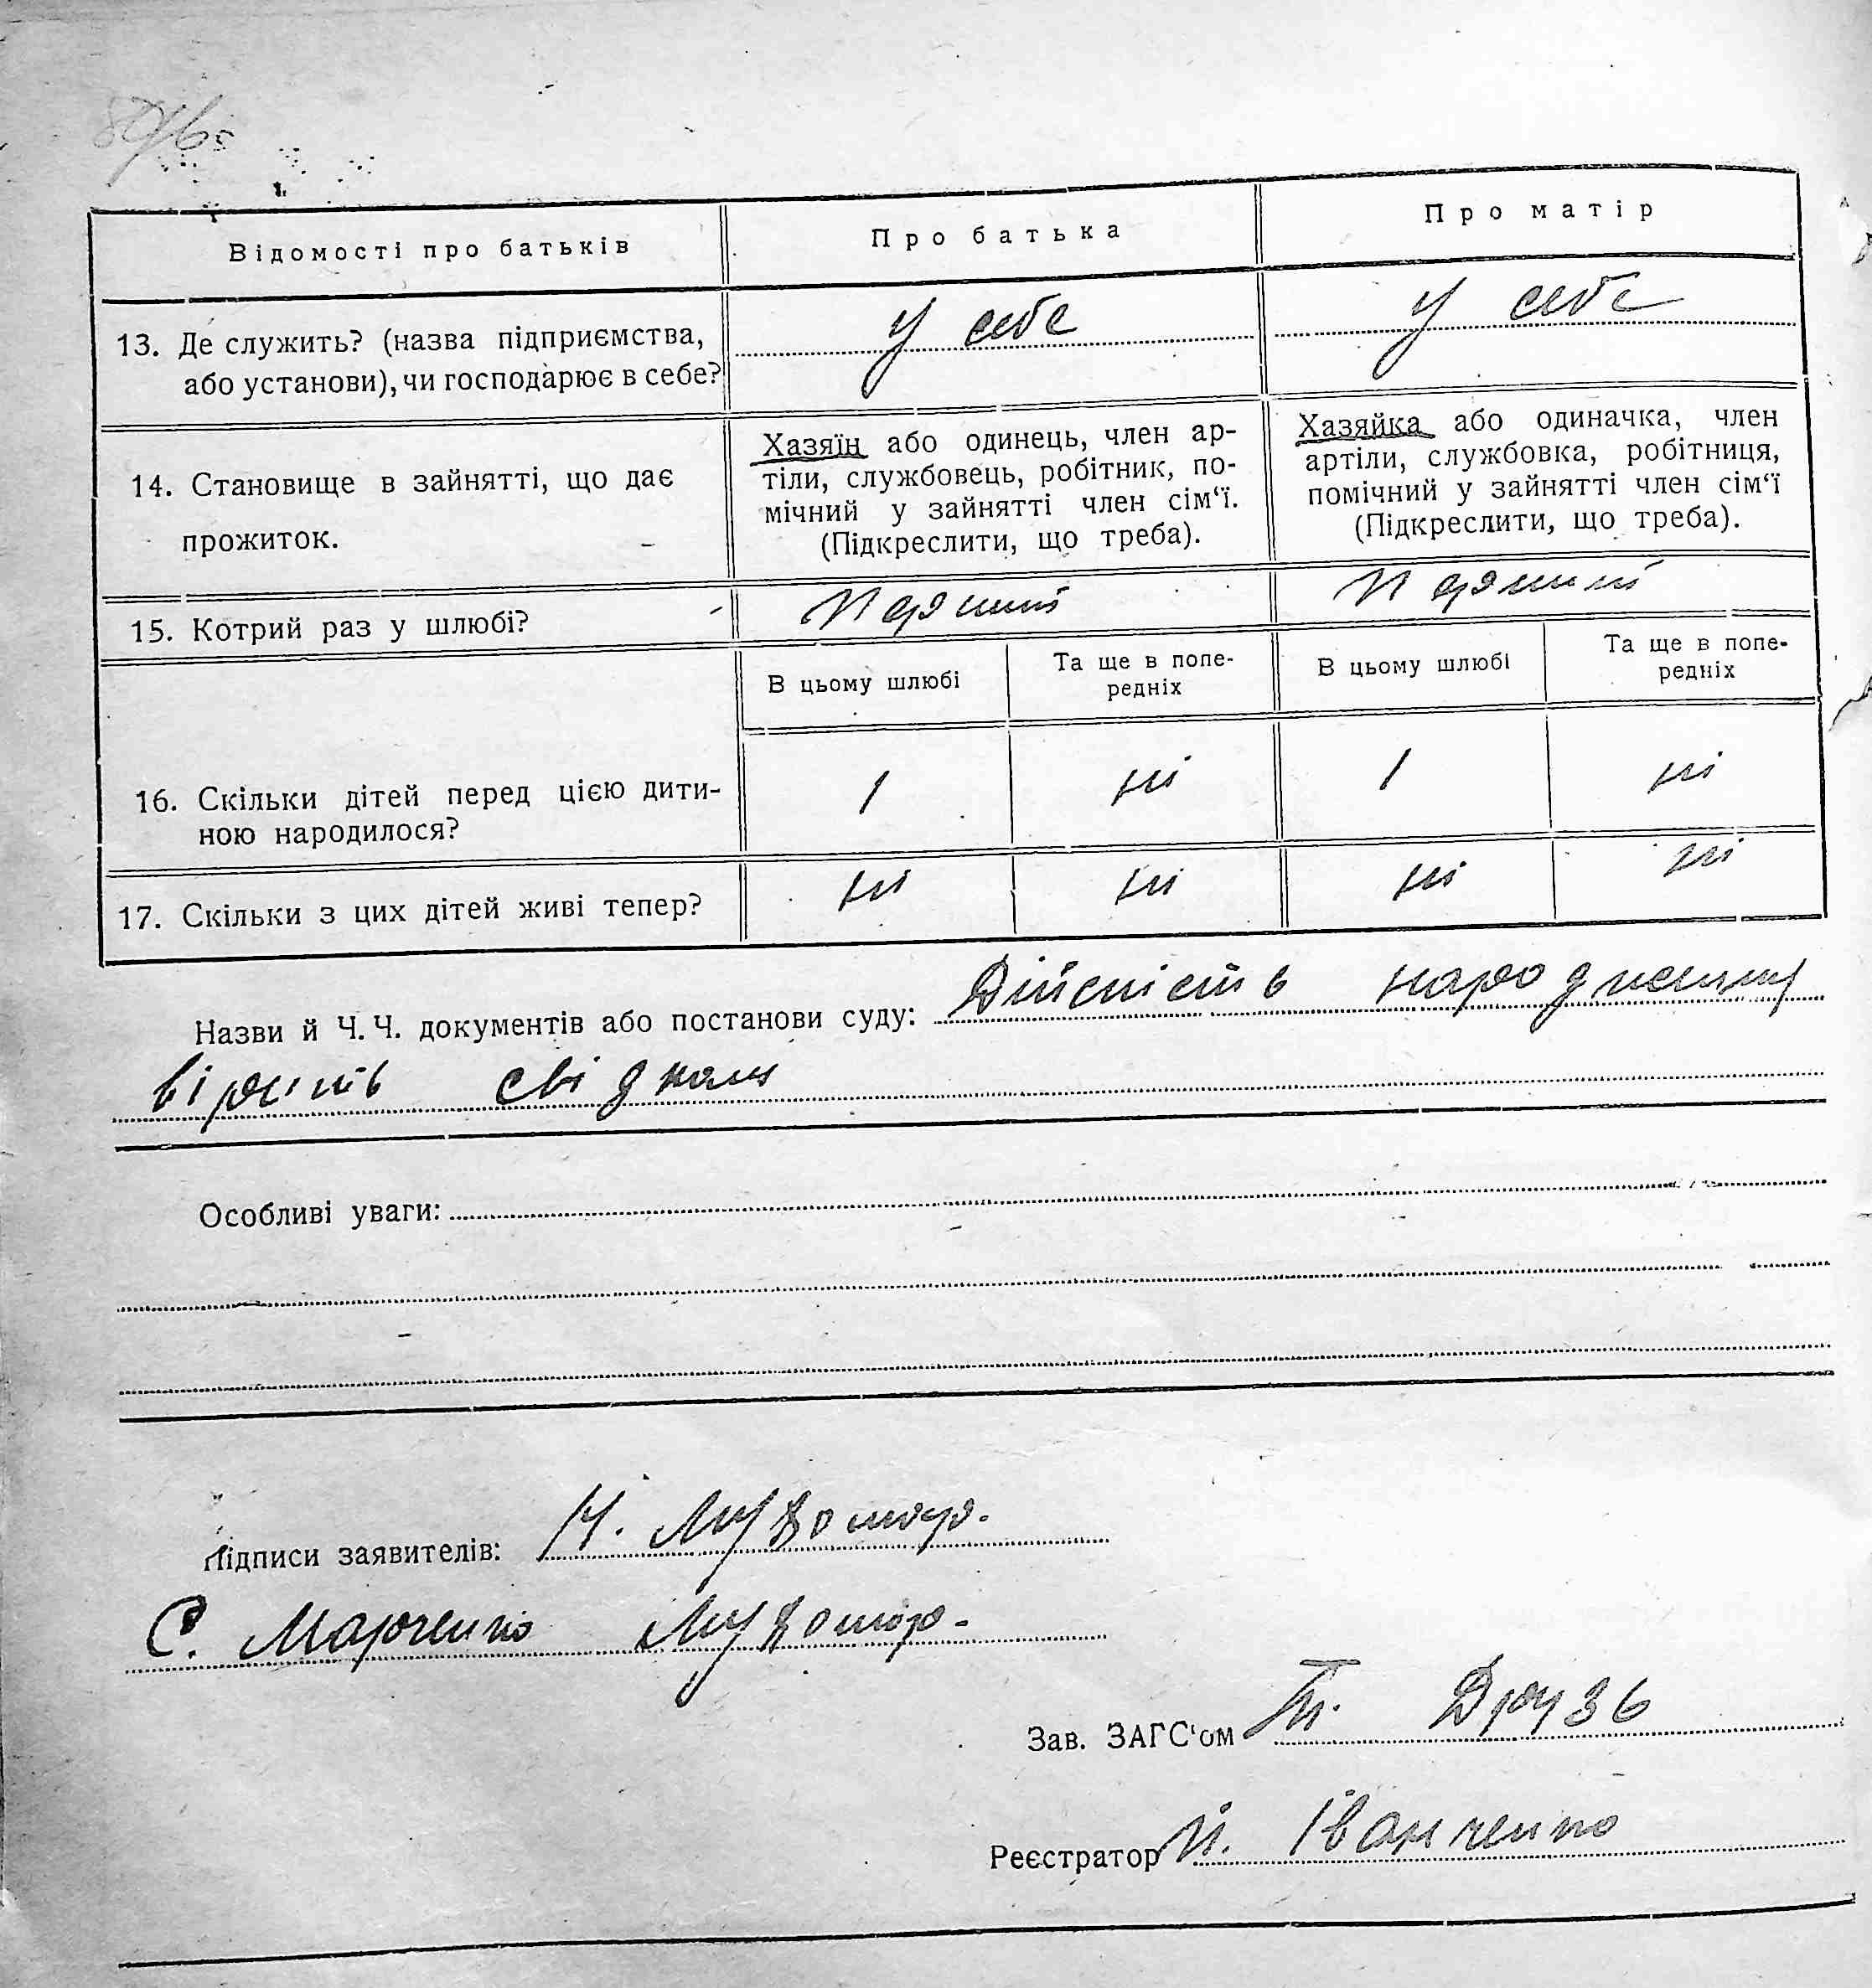 Відомості про батьків
Про батька
Про матір
13. Де служить? (назва підприємства,
або установи), чи господарює в себе?
У себе
У себе
14. Становище в зайнятті, що дає
прожиток.
Хазяїн або одинець, член ар-
тіли, службовець, робітник, по-
мічний у зайнятті член сім‘ї.
(Підкреслити, що треба).
Хазяйка або одиначка, член
артіли, службовка, робітниця,
помічний у зайнятті член сім‘ї
(Підкреслити, що треба).
15. Котрий раз у шлюбі?
Перший
Перший
В цьому шлюбі
Та ще в попе-
редніх
В цьому шлюбі
Та ще в попе-
редніх
16. Скільки дітей перед цією дити-
ною народилося?
1
ні
1
ні
17. Скільки з цих дітей живі тепер?
ні
ні
ні
ні
Назви й Ч. Ч. документів або постанови суду: Дійсність народження
вірить свідками
Особливі уваги:
Підписи заявителів: Н.
С. Марченко
Зав. ЗАГС‘ом Т. Друзь
Реєстратор Й. Іванченко